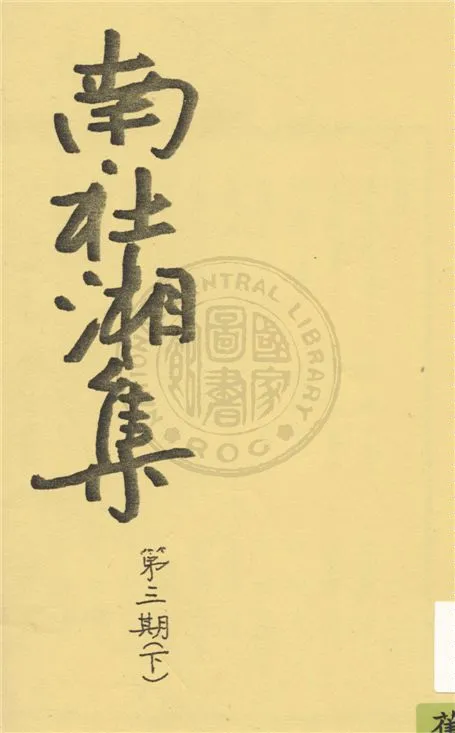 南社湘集
第三期(下)
國家
圖書
館
NATIONAL CENTRAL LIBRARY
ROC